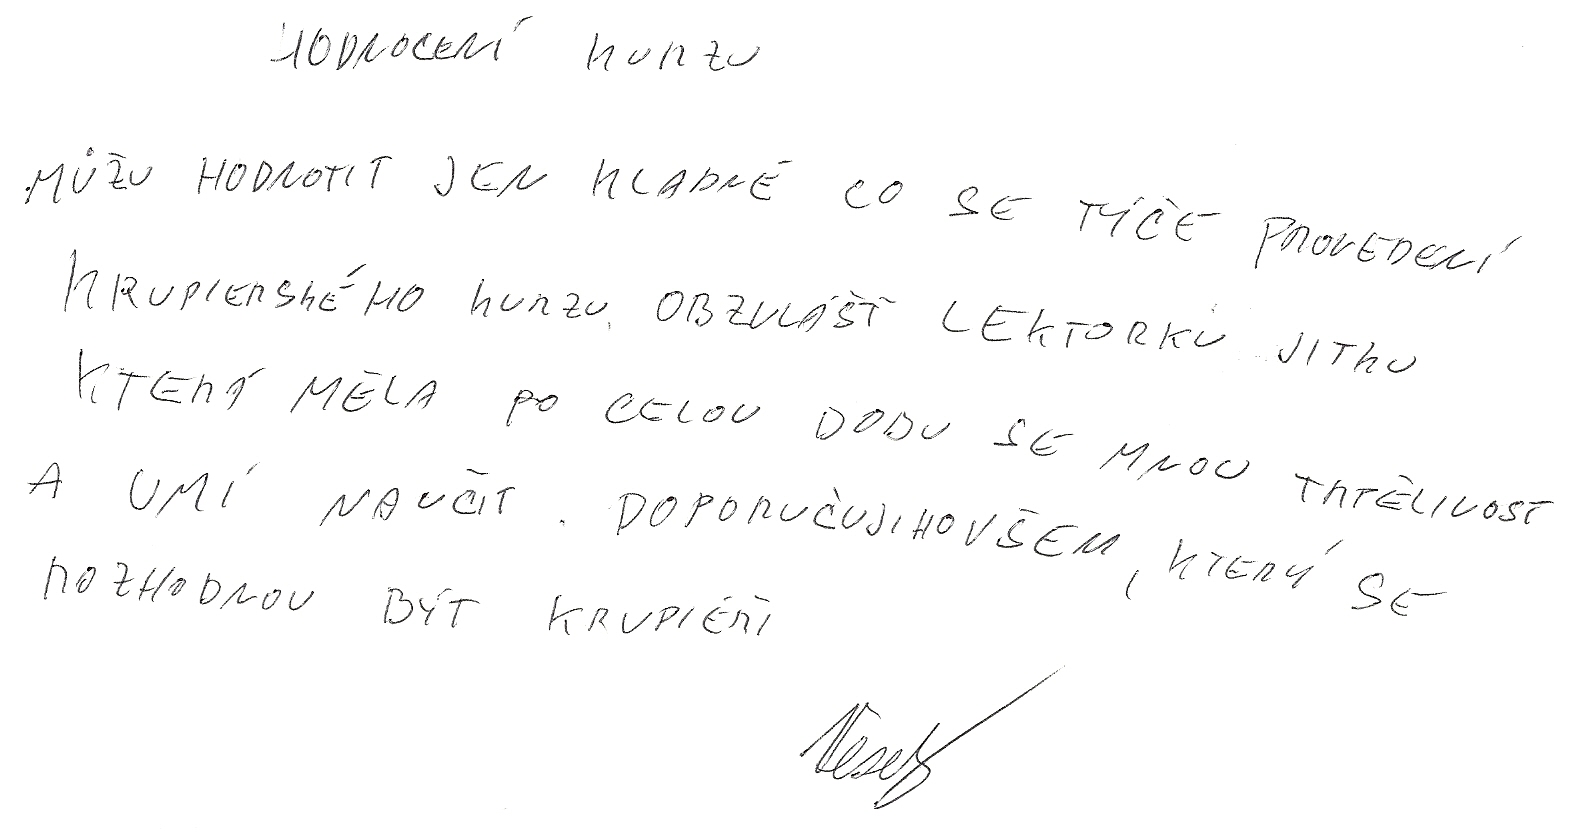 HODNOCENÍ KURZU
MŮŽU HODNOTIT JEN KLADNĚ CO SE TÝČE PROVEDENÍ
KRUPIERSKÉHO KURZU. OBZVLÁŠŤ LEKTORKU JITKU
KTERÁ MĚLA PO CELOU DOBU SE MNOU TRTĚLIVOST
A UMÍ NAUČIT. DOPORUČUJI HO VŠEM, KTERÝ SE
ROZHODNOU BÝT KRUPIÉŘI